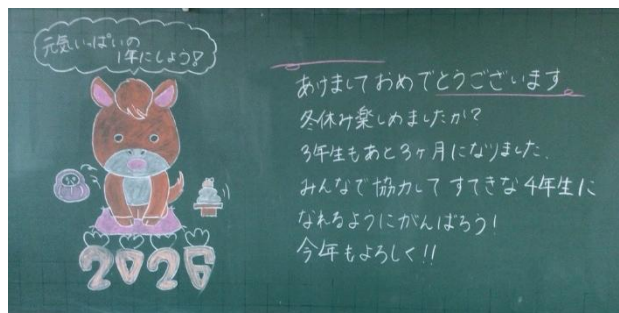 元気いっぱいの
1年にしよう！
2026
あけましておめでとうございます。
冬休み楽しめましたか？
3年生もあと3ヶ月になりました。
みんなで協力して すてきな4年生に
なれるようにがんばろう！
今年もよろしく！！